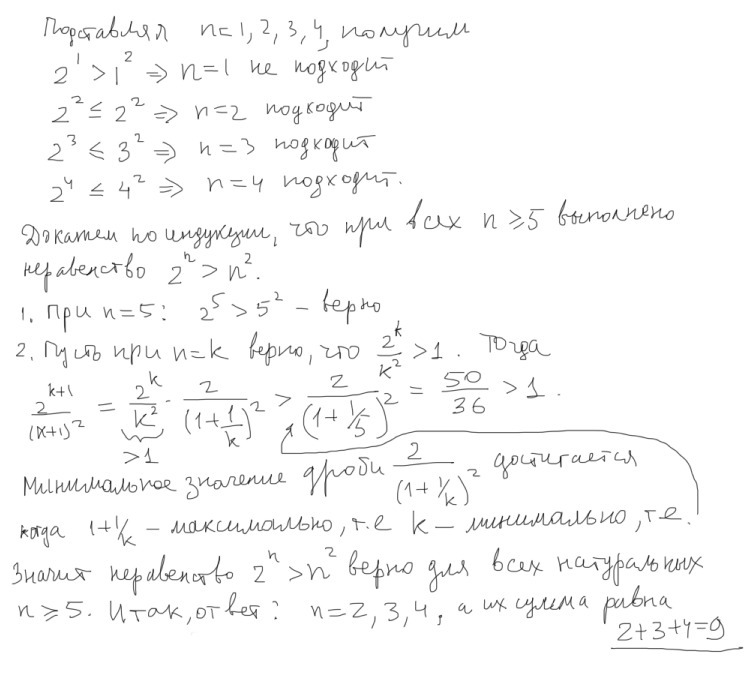 Подставляя n=1, 2, 3, 4, получим
2^1 > 1^2 => n=1 не подходит
2^2 ≤ 2^2 => n=2 подходит
2^3 ≤ 3^2 => n=3 подходит
2^4 ≤ 4^2 => n=4 подходит.
Докажем по индукции, что при всех n ≥ 5 выполнено
неравенство 2^n > n^2.
1. При n=5: 2^5 > 5^2 – верно
2. Пусть при n=k верно, что 2^k/k^2 > 1. Тогда
2^(k+1)/(k+1)^2 = 2^k/k^2 · 2/(1+1/k)^2 > 2/(1+1/5)^2 = 50/36 > 1.
>1
Минимальное значение дроби 2/(1+1/k)^2 достигается
когда 1+1/k – максимально, т.е k – минимально, т.е.
Значит неравенство 2^n > n^2 верно для всех натуральных
n ≥ 5. Итак, ответ: n=2, 3, 4, а их сумма равна
2+3+4=9